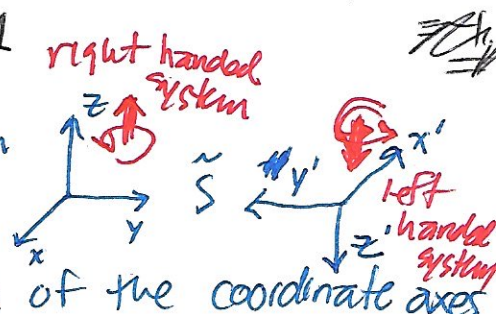 right handed
system
z
S̃
y'
x'
x
y
left
handed
z'
system
of the coordinate axes